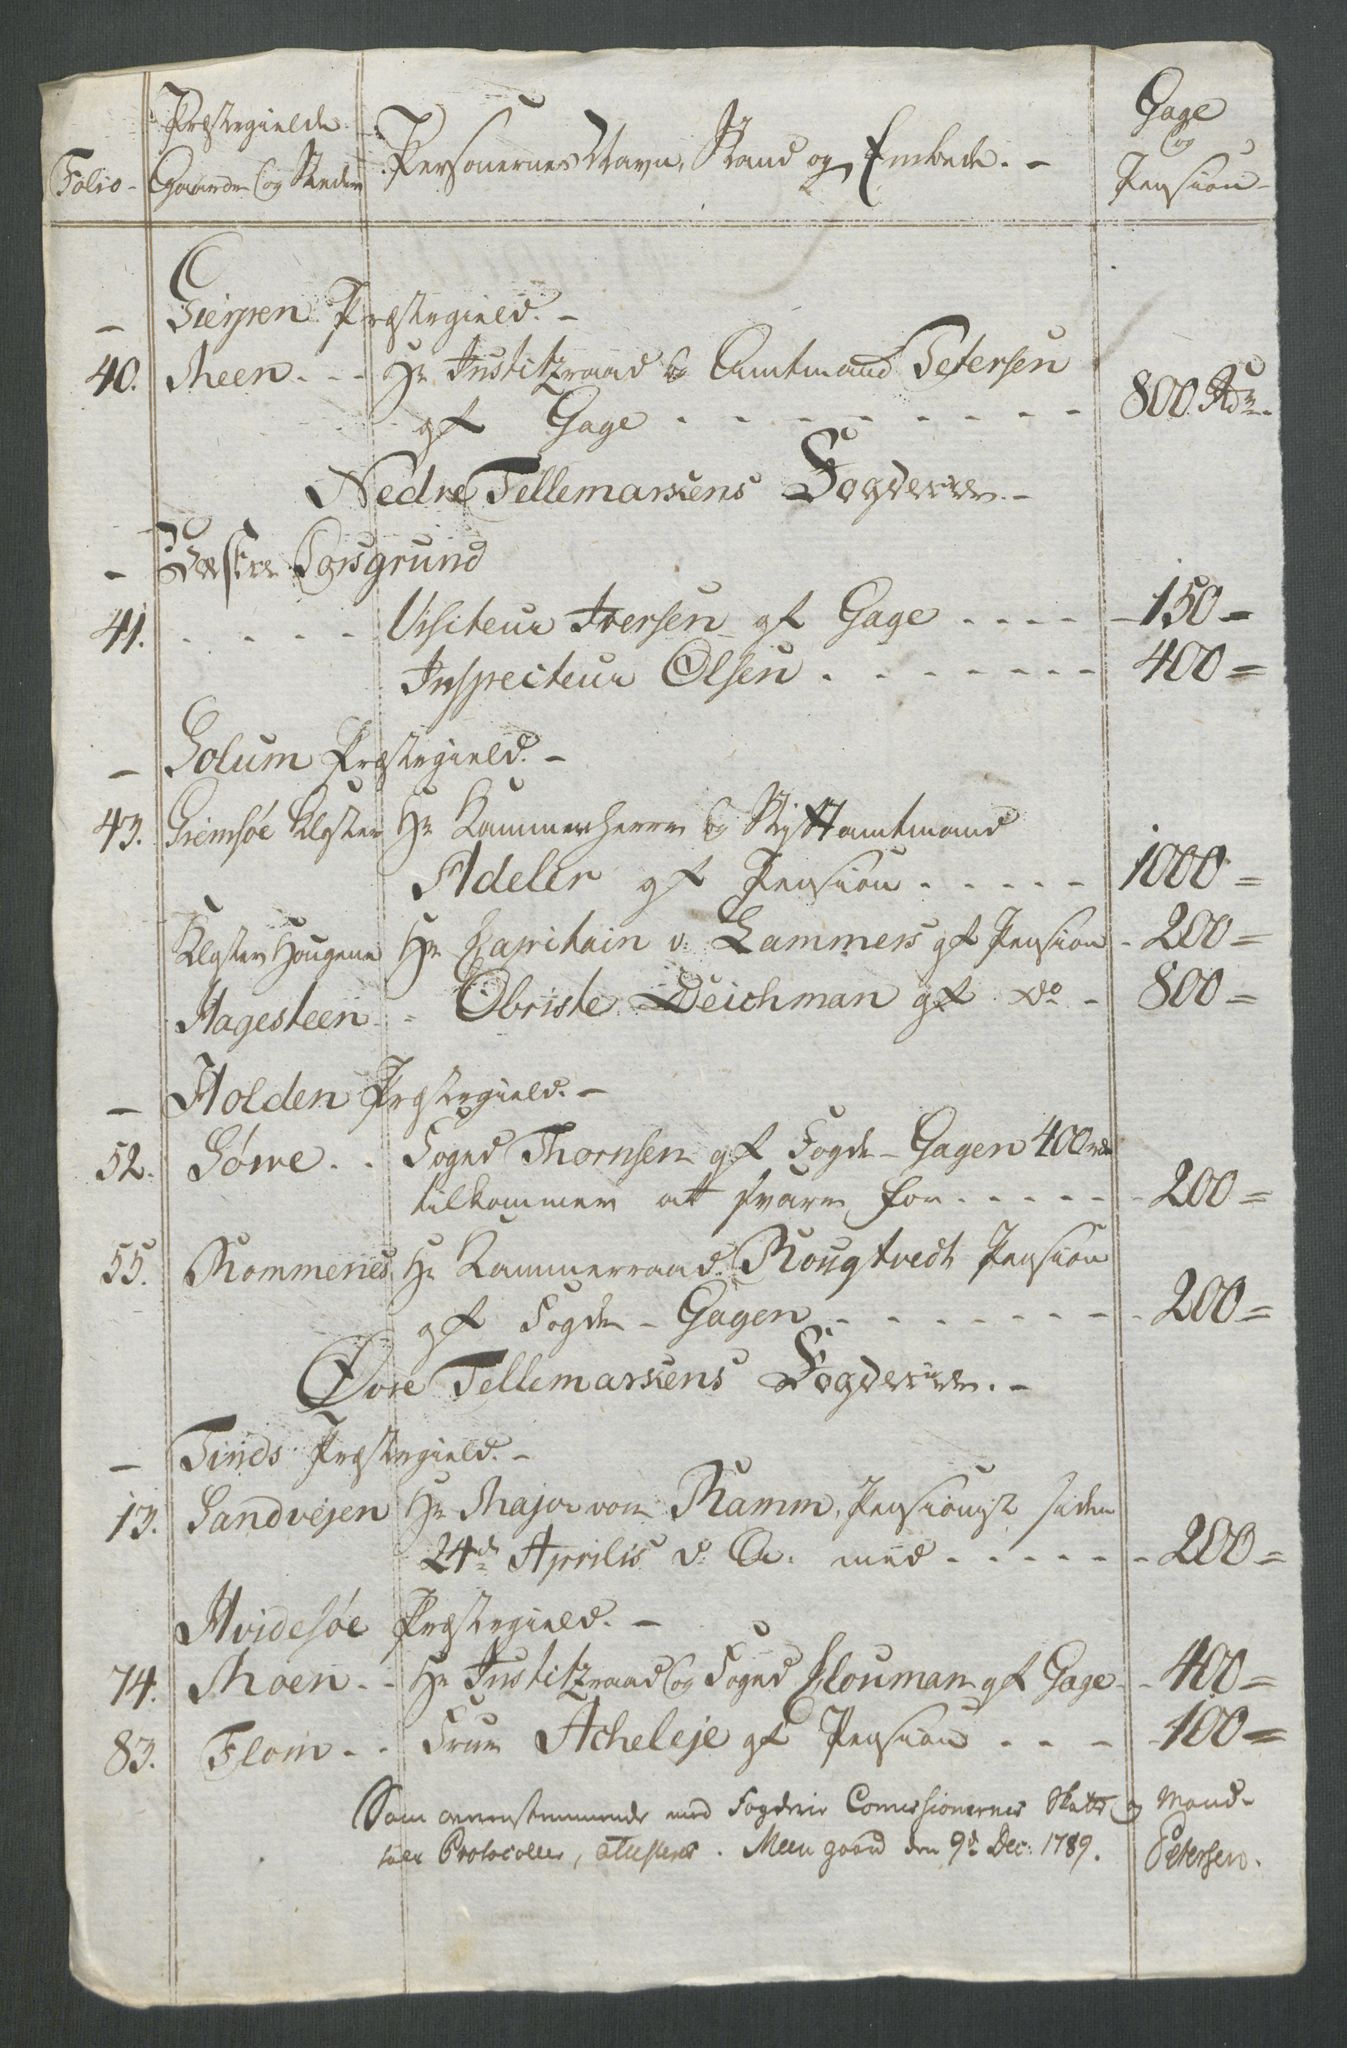 Folio
Præstegielde
Gaarde og Stæder
Personernes Navn, Stand og Embede.
Gage
og
Pension
Gierpen Præstegield.
40. Meen. Hr Justitzraad og Amtmand Petersen
gl Gage 800 Rdr.
Nedre Tellemarkens Fogderie.
Vestre Porsgrund
41. Visiteur Iversen gl Gage 150
Inspecteur Olsen 400
Solum Præstegield.
43. Giemsøe Kloster Hr Kammerherre og Stiftamtmand
Adeler gl Pension 1000
Kloster Hougene Hr Kapitain v: Lammers gl Pension 200
Hagesteen Obriste Deichman gl do 800
Holden Præstegield.
52. Søwe Foged Thornsen gl Fogde-Gagen 400 rd
tilkommer att svare for 200
55. Rommenes Hr Kammerraad Rougtvedt Pension
gl Fogde-Gagen 200
Øvre Tellemarkens Fogderie.
Tinds Præstegield.
13. Sandvejen Hr Major von Ramm, Pensionist siden
24de Aprilis d: A: med 200
Hvidesøe Præstegield.
74. Moen Hr Justitzraad og Foged Clouman gl Gage 400
83. Flom Frue Acheleje gl Pension 100
Som overenstemmende med Fogderie Comissionernes Skatte og Mand-
tals Protocoller, attesteres. Meen gaard den 9de Dec: 1789. Petersen.